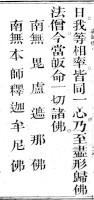 日我等相率皆同一心乃至靈形歸佛
法僧今當皈命一切諸佛
南無毘盧遮那佛
南無本師釋迦牟尼佛